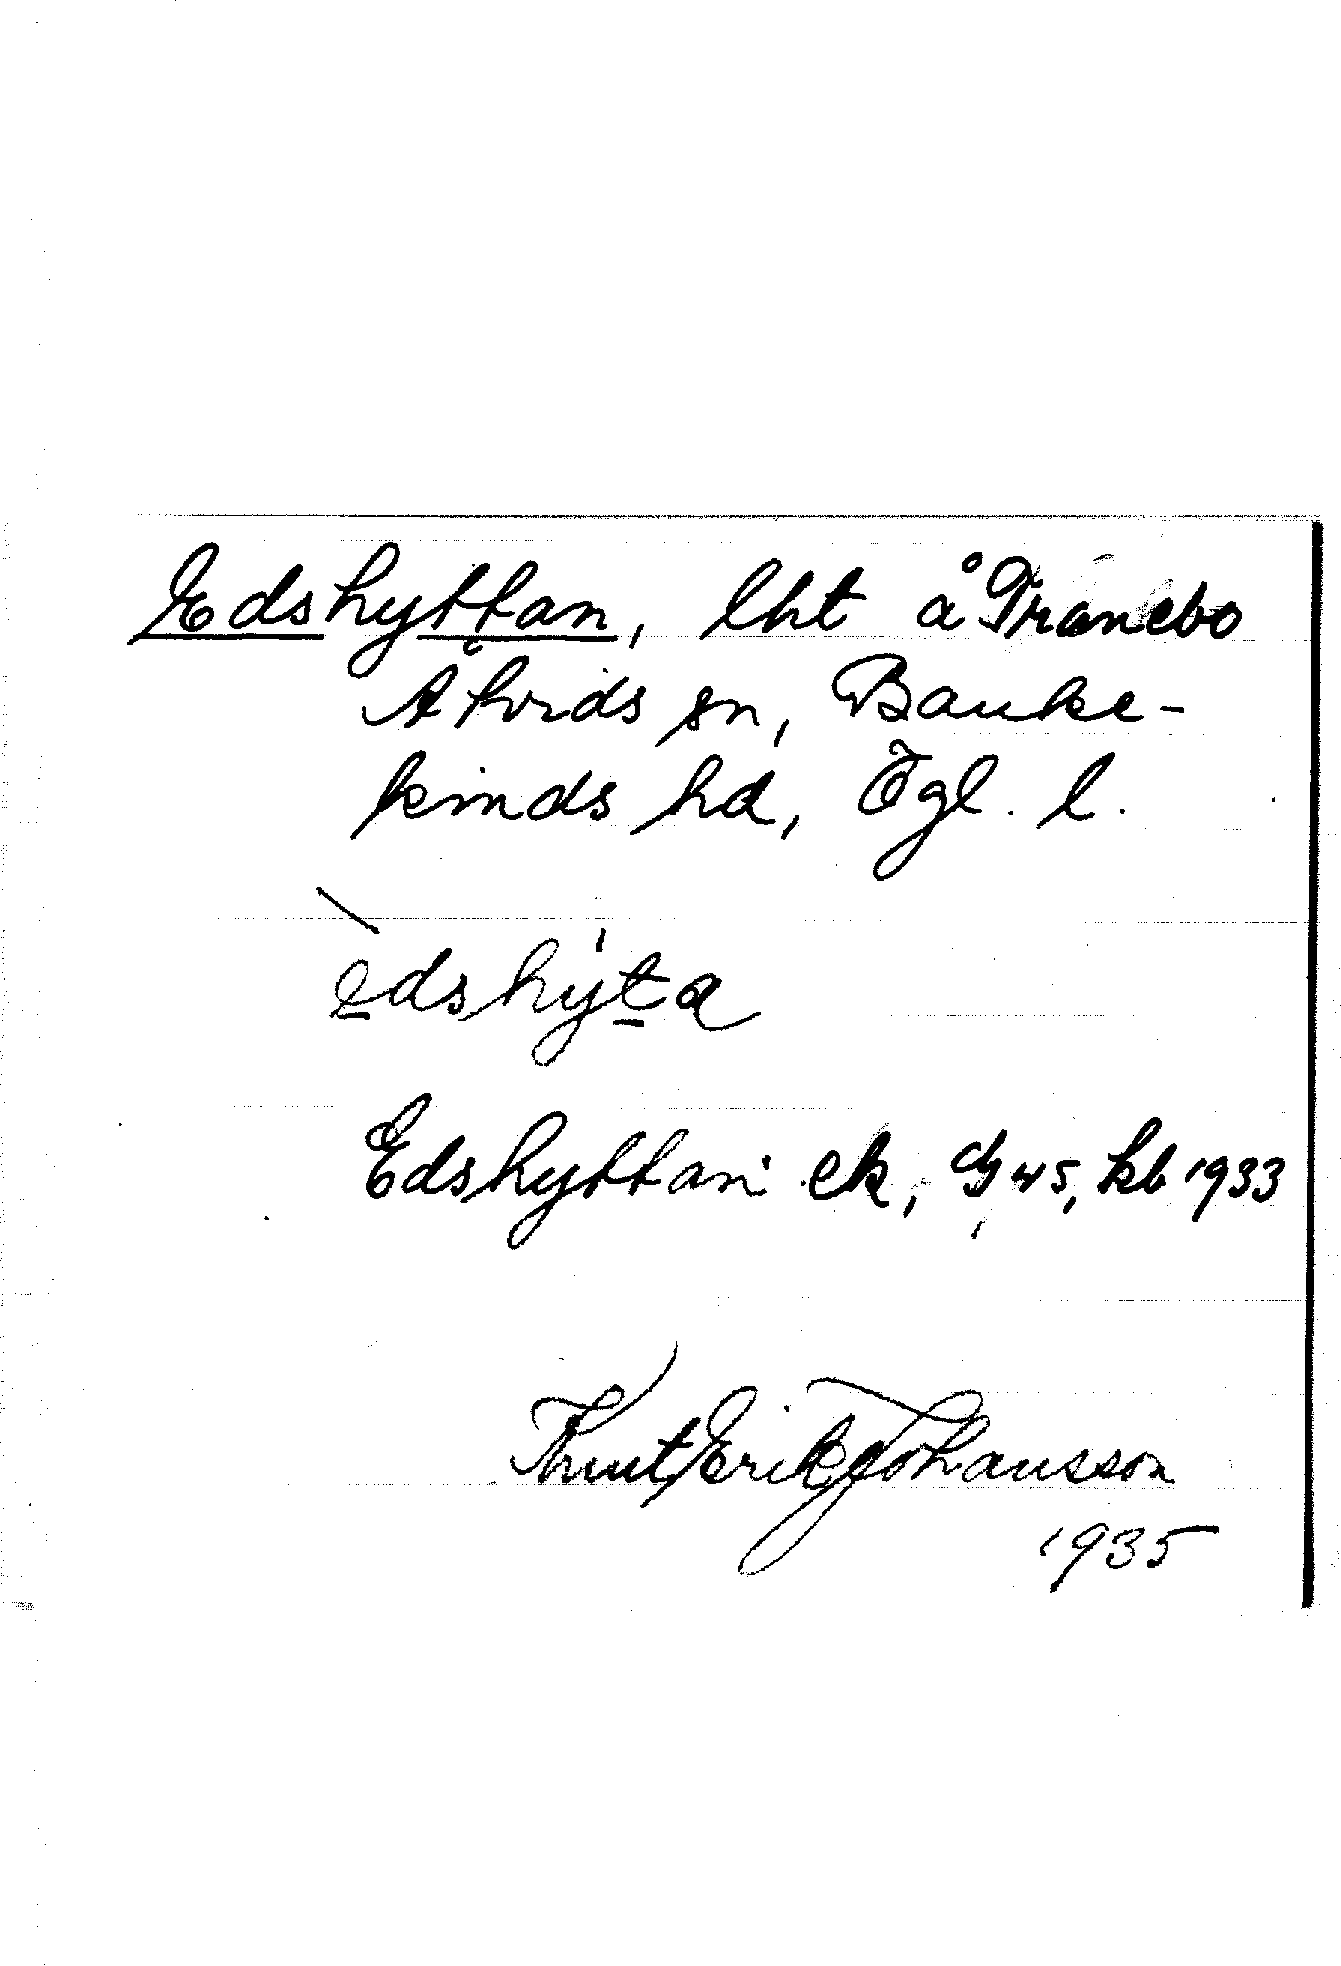 Edshyttan, lht å Tranebo
Åtvids sn, Banke-
kinds hd, Ögl. l.
edshyta
Edshyttan ek, G 45, kb 1933
Knut Erik Johansson
1935